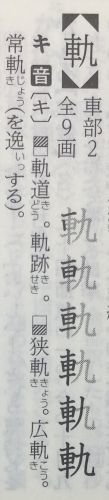 【軌】
車部2
全9画
軌軌軌軌軌
キ 音〔キ〕■軌道どう。軌跡せき。◪狭軌きょうき。広軌こうき。
常軌じょうき(を逸いっする)。